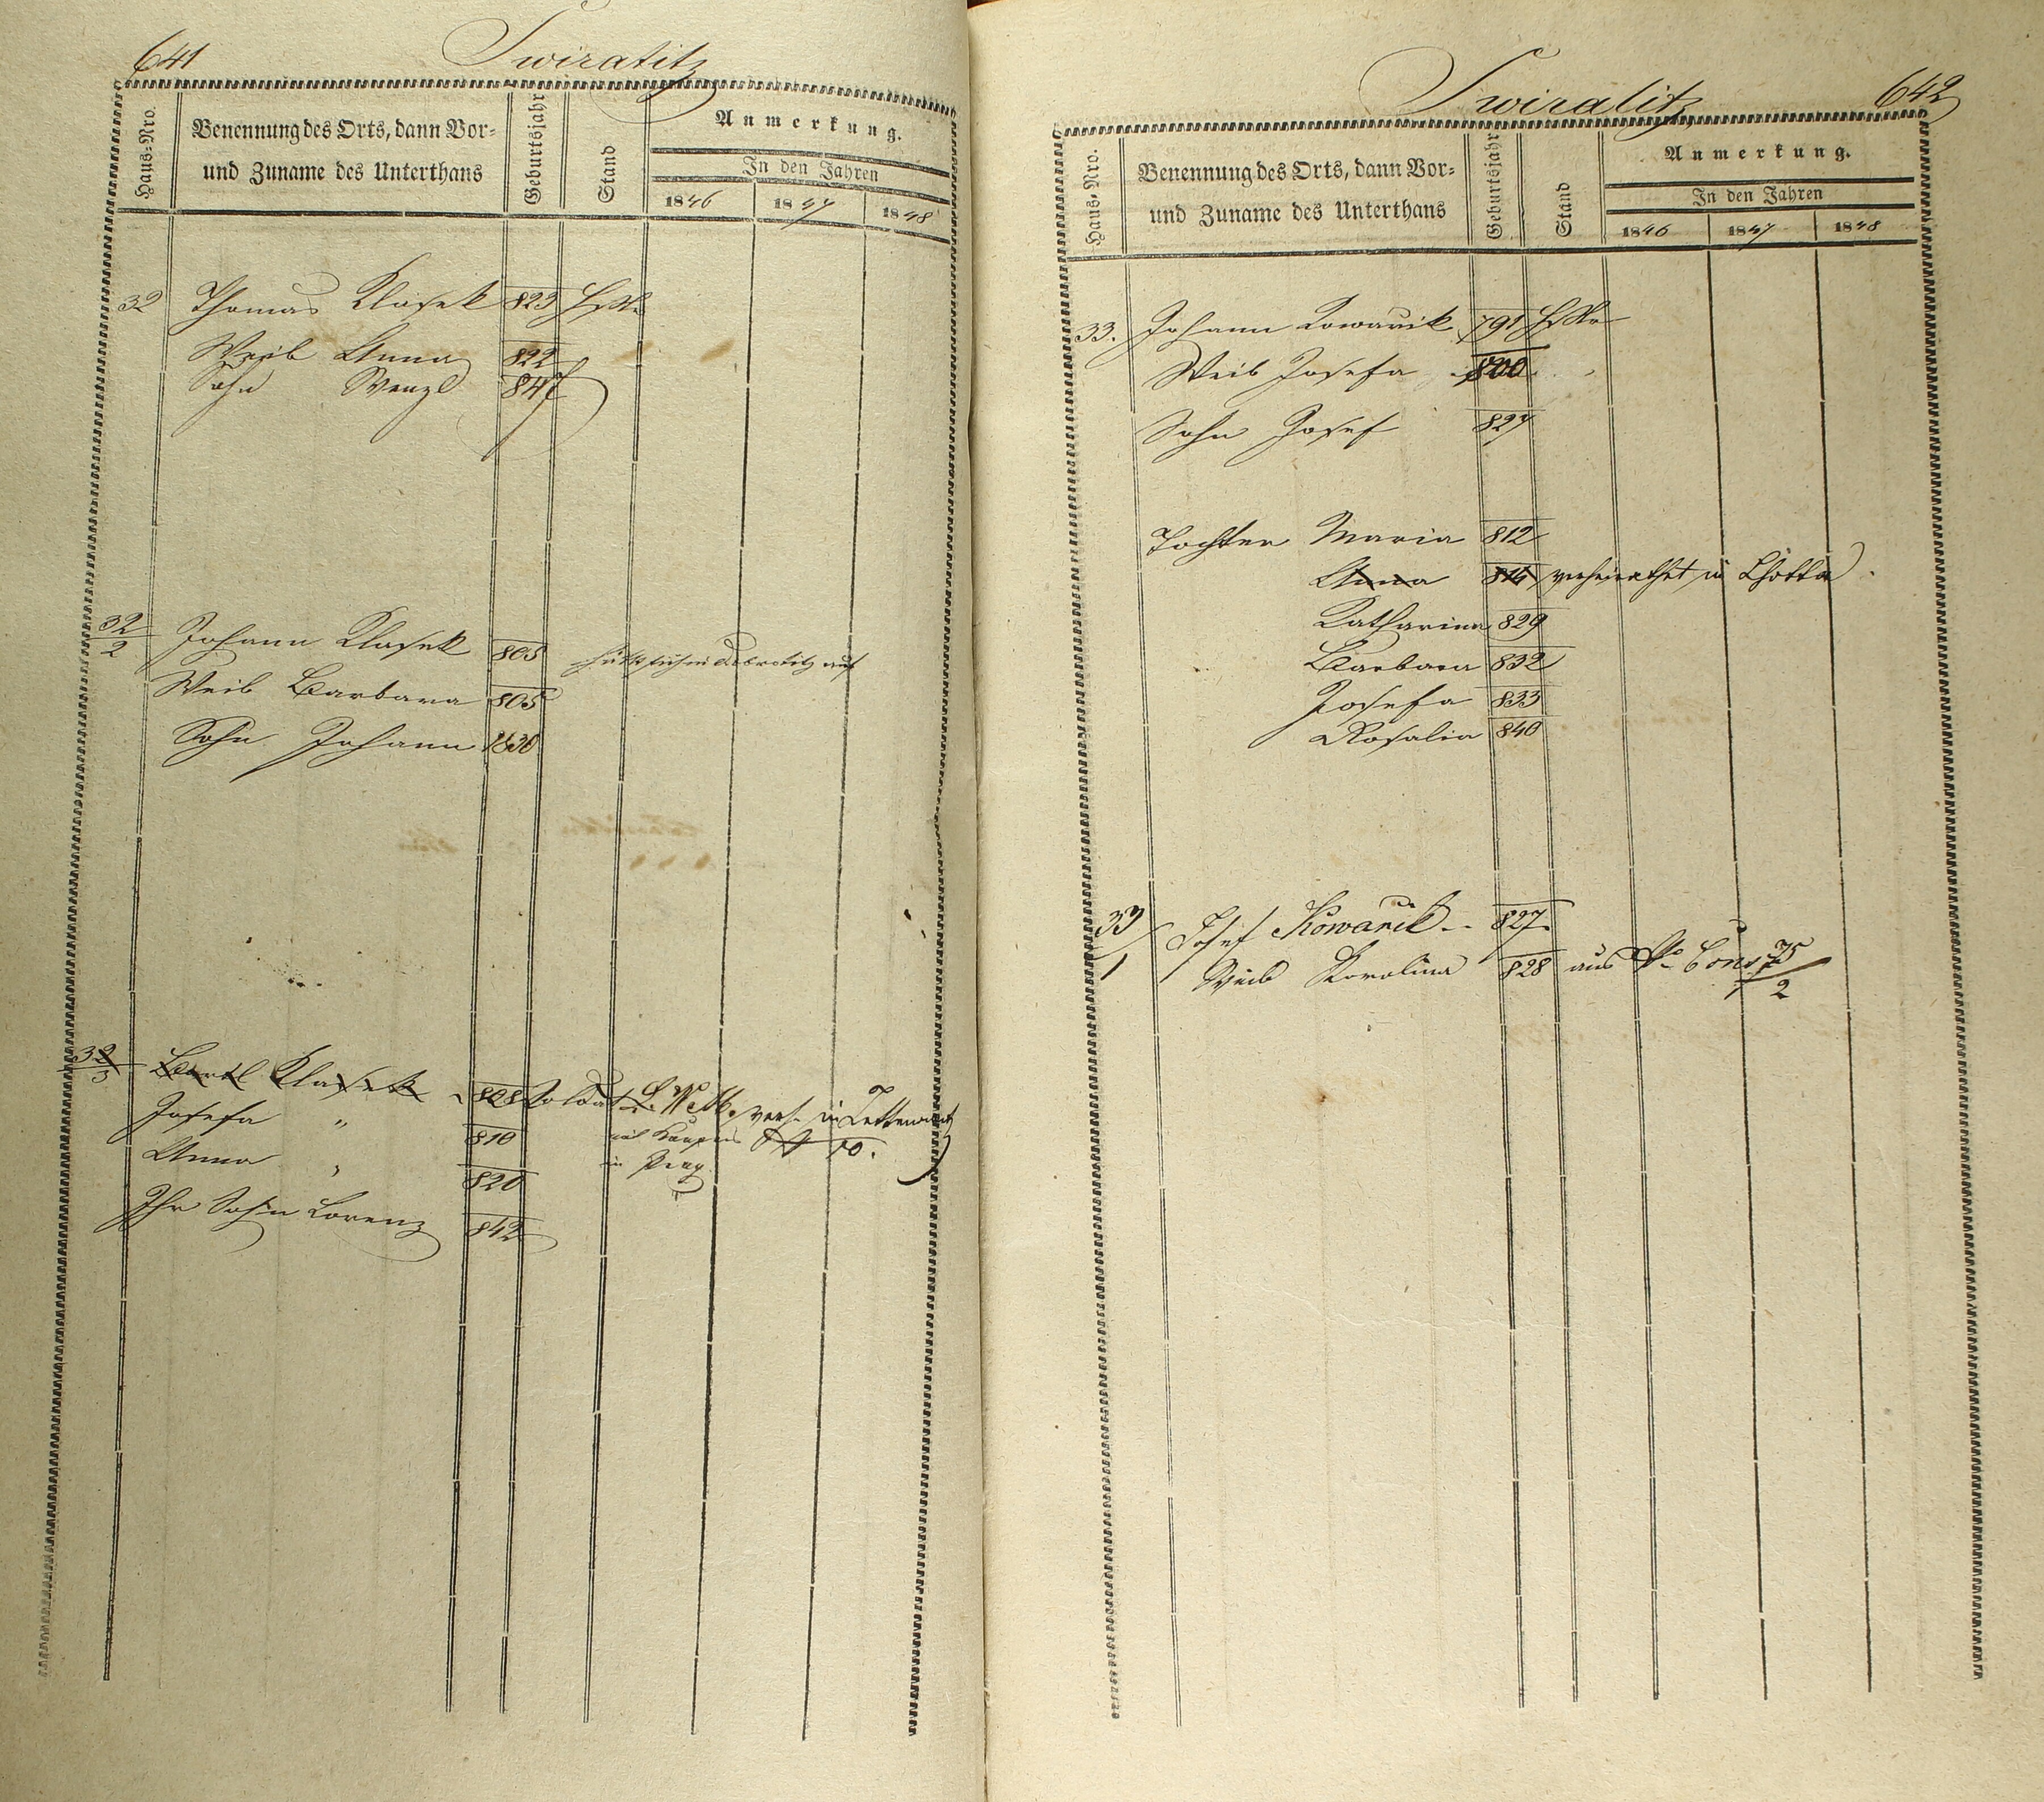 641
Swiratitz
Haus=Nro.
Benennung des Orts, dann Vor=
und Zuname des Unterthans
Geburtsjahr
Stand
Anmerkung.
In den Jahren
1846 1847 1848
32 Thomas Klasek 823
Weib Anna 822
Sohn Wenzl 847
32/2 Johann Klasek 805
Weib Barbara 805
Sohn Johann 1830
32/3 Bartl Klasek 808 Soldat
Josefa " 810
Anna " 820
in Prag
Ihr Sohn Lorenz 842
642
Swiratitz
Haus=Nro.
Benennung des Orts, dann Vor=
und Zuname des Unterthans
Geburtsjahr
Stand
Anmerkung.
In den Jahren
1846 1847 1848
33. Johann Kowarik 791
Weib Josefa 800
Sohn Josef 827
Tochter Maria 812
Anna 814 verheirathet in Lhotta.
Katharina 829
Barbara 832
Josefa 833
Rosalia 840
33/1 Josef Kowařik 827.
Weib Karolina 828 aus No Cons 35/2